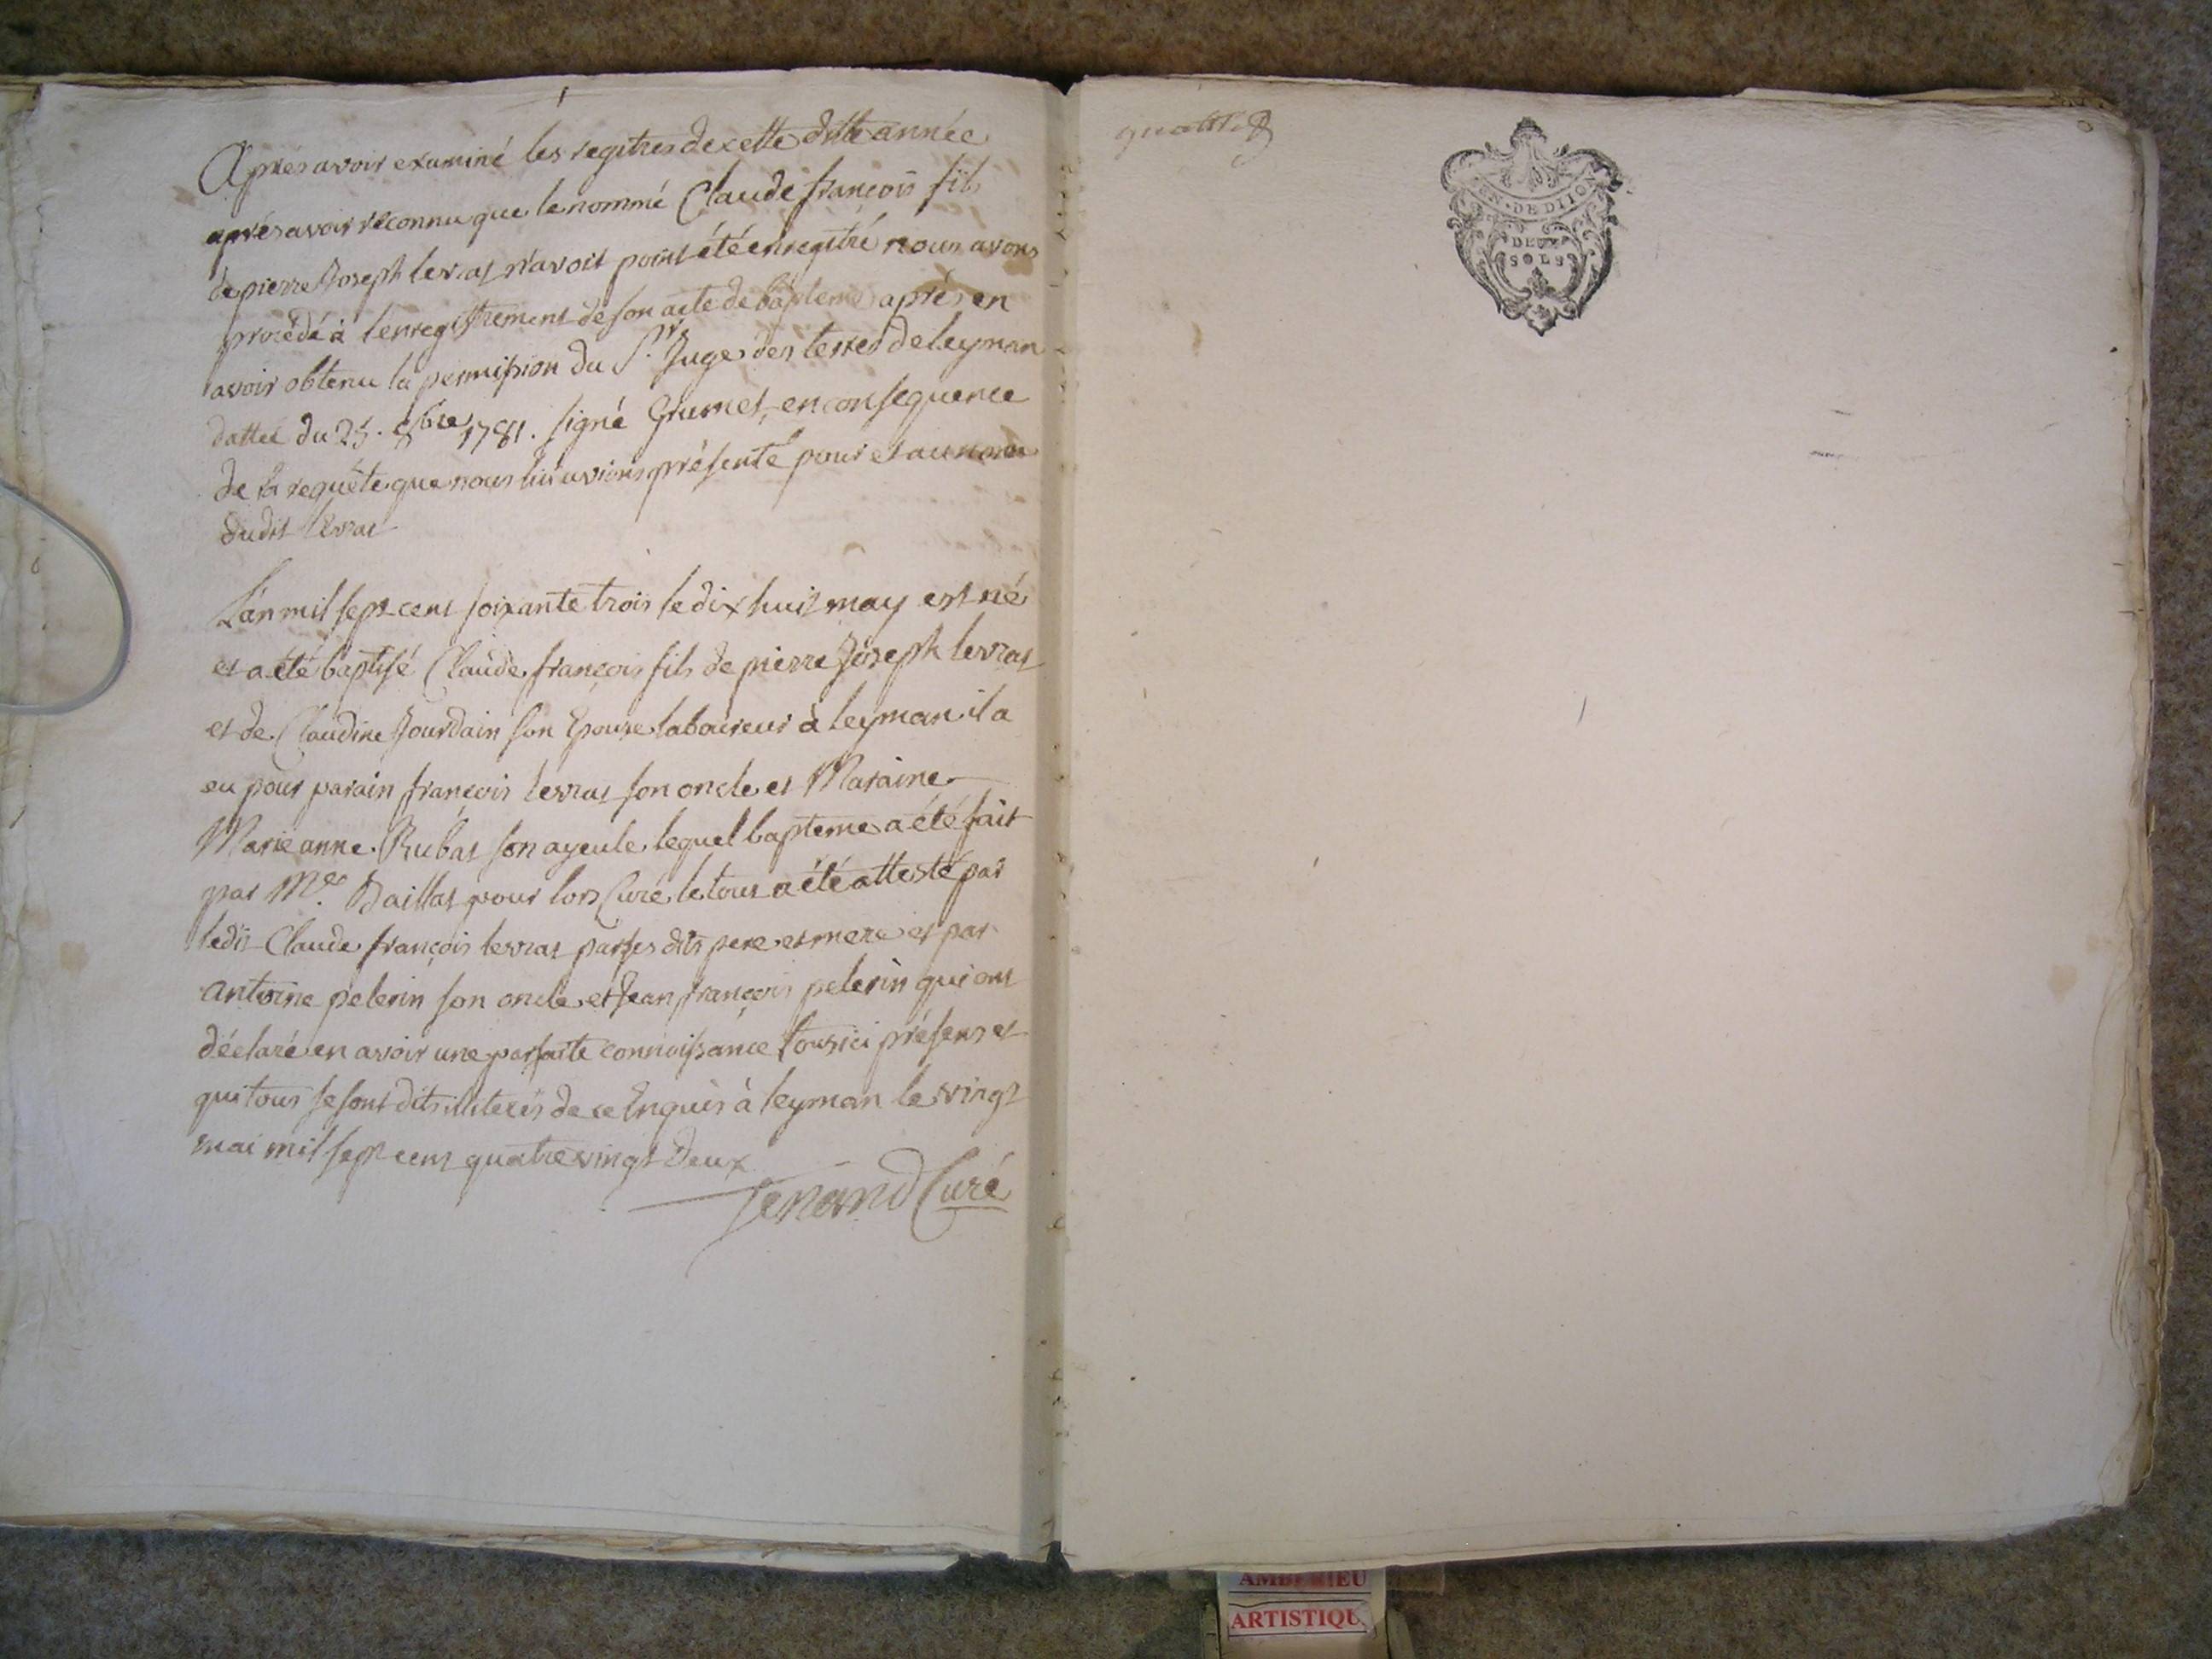 Apres avoir examiné les regitres de cette ditte année
après avoir reconnu que le nommé Claude françois fils
de pierre Joseph levrat n'avoit point été enregitré nous avons
procédé à l'enregistrement de son acte de bapteme après en
avoir obtenu la permission du S.r Juge des terres de leyman
dattée du 25. 8bre 1781. signé Grumet, en consequence
de la requête que nous lui avions présenté pour et au nom
dudit levrat
L'an mil sept cent soixante trois le dix huit may est né
et a été baptisé Claude françois fils de pierre Joseph levrat
et de Claudine Jourdain son Epouse laboureur à leyman il a
eu pour parain françois levrat son oncle et Maraine
Marie anne Rubat son ayeule lequel bapteme a été fait
par M.re Baillat pour lors Curé le tout a été attesté par
ledit Claude françois levrat par ses dits pere et mere et par
antoine pelerin son oncle et Jean françois pelerin qui ont
déclaré en avoir une parfaite connoissance tous ici présens et
qui tous se sont dits illiterés de ce Enquis à leyman le vingt
mai mil sept cent quatre vingt deux
Tenand Curé
GEN. DE DIJON
DEUX
SOLS
AMBERIEU
ARTISTIQU